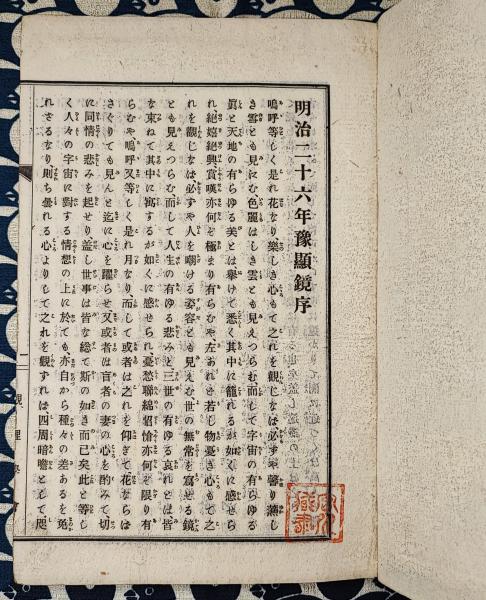 明治二十六年豫顯鏡序
嗚呼等しく是れ花なり樂しき心もて之れを觀じなば必ずや馨り蕩し
き雲とも見にむ、色麗はしき雲とも見えつらむ、而して宇宙の有らゆる
眞と天地の有らゆる美とは擧けて悉く其中に籠れるが如くに感せら
れ絶嬉絶興、賞嘆亦何ぞ極まり有らむや左あれど若し物憂き心もて之
れを觀じなば必ずや人を嘲ける姿容とも見えむ世の無常を寫せる鏡
とも見えつらむ而して人生の有ゆる悲みと三世の有ゆる哀れとは皆
な束ねて其中に寓するが如くに感せられ憂愁聯綿 亦何ぞ限り有
らむや嗚呼又等しく是れ月なり、而して或者は之れを仰ぎて、花ならば
さぐりても見んと迄に心を躍らせ又或者は盲者の妻の心を酌みて切
に同情の悲みを起せり蓋し世事は皆な總て斯の如き而已矣此と等し
く人々の宇宙に對する情想の上に於ても亦自から種々の差あるを免
れさるなり、則ち曇れる心よりして之れを觀ずれは四周暗瞻として咫
二
觀理學會